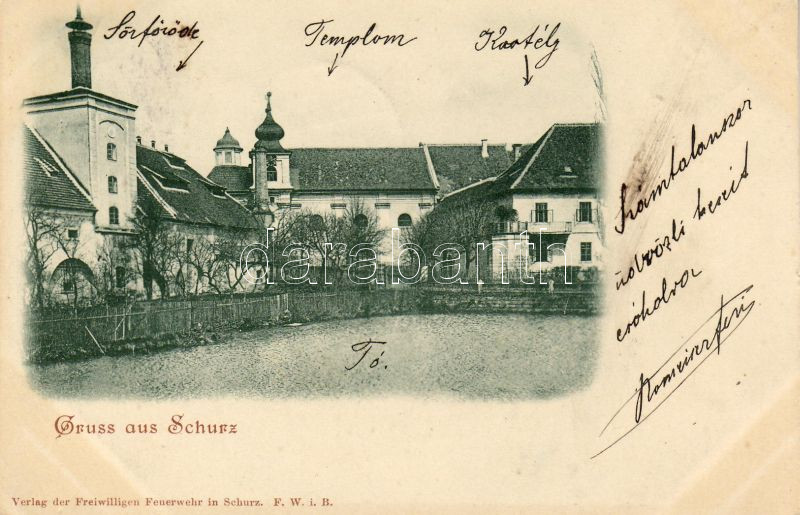 Sörfőzöde
Templom
Kastély
Számtalanszor
üdvözli kezeit
csókolva
darabanth
Tó.
Gruss aus Schurz
Verlag der Freiwilligen Feuerwehr in Schurz. F. W. i. B.